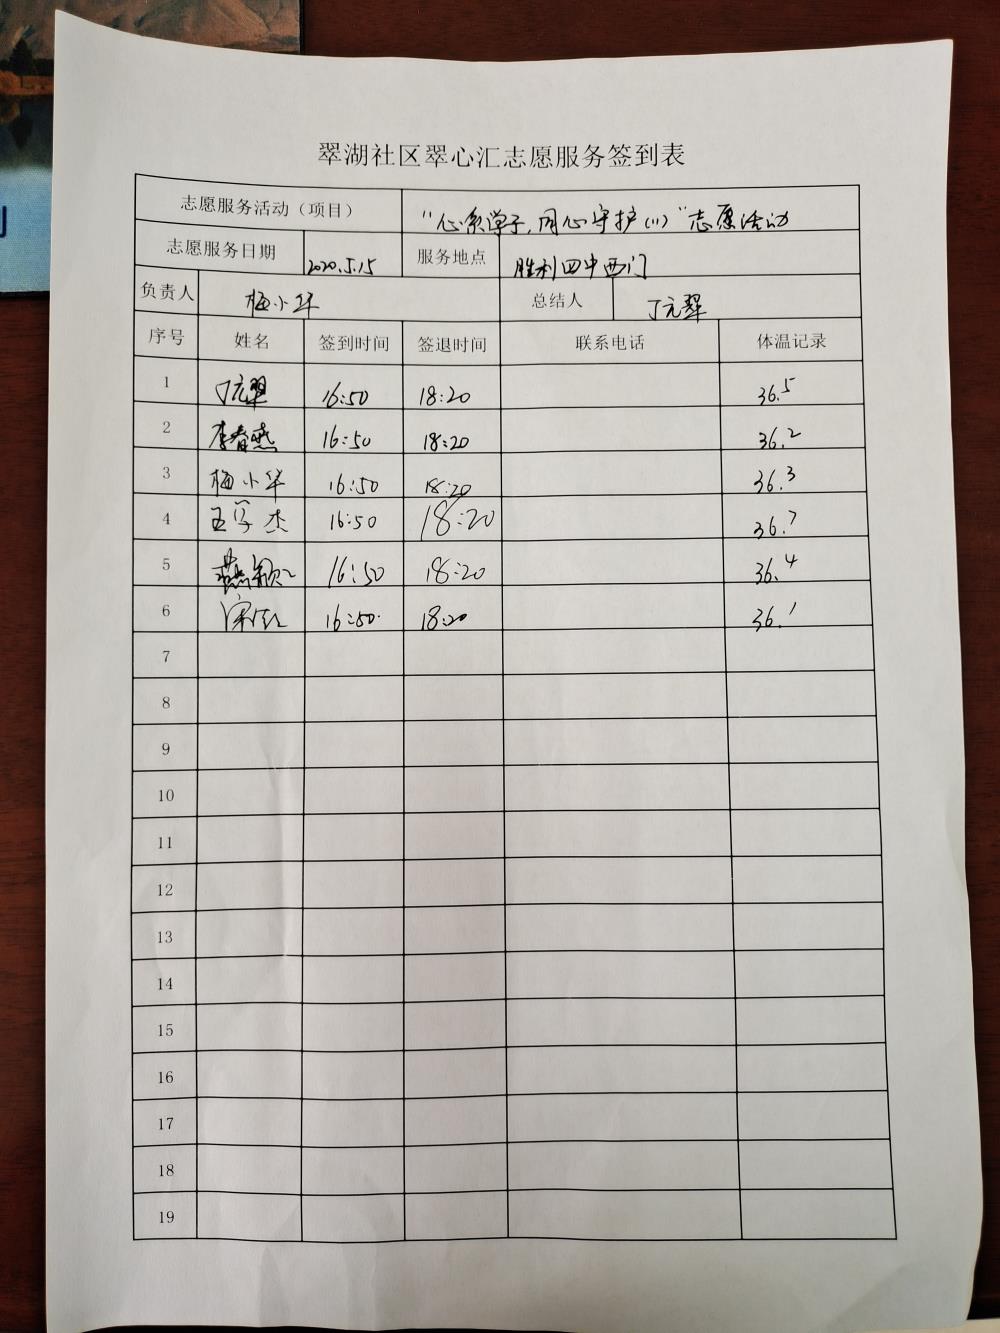 翠湖社区翠心汇志愿服务签到表
志愿服务活动（项目） "心系学子,同心守护(11)"志愿活动
志愿服务日期 2020.5.15 服务地点 胜利四中西门
负责人 梅小华 总结人 丁元翠
序号 姓名 签到时间 签退时间 联系电话 体温记录
1 丁元翠 16:50 18:20 36.5
2 李春燕 16:50 18:20 36.2
3 梅小华 16:50 18:20 36.3
4 王学杰 16:50 18:20 36.7
5 16:50 18:20 36.4
6 16:50 18:20 36.1
7
8
9
10
11
12
13
14
15
16
17
18
19